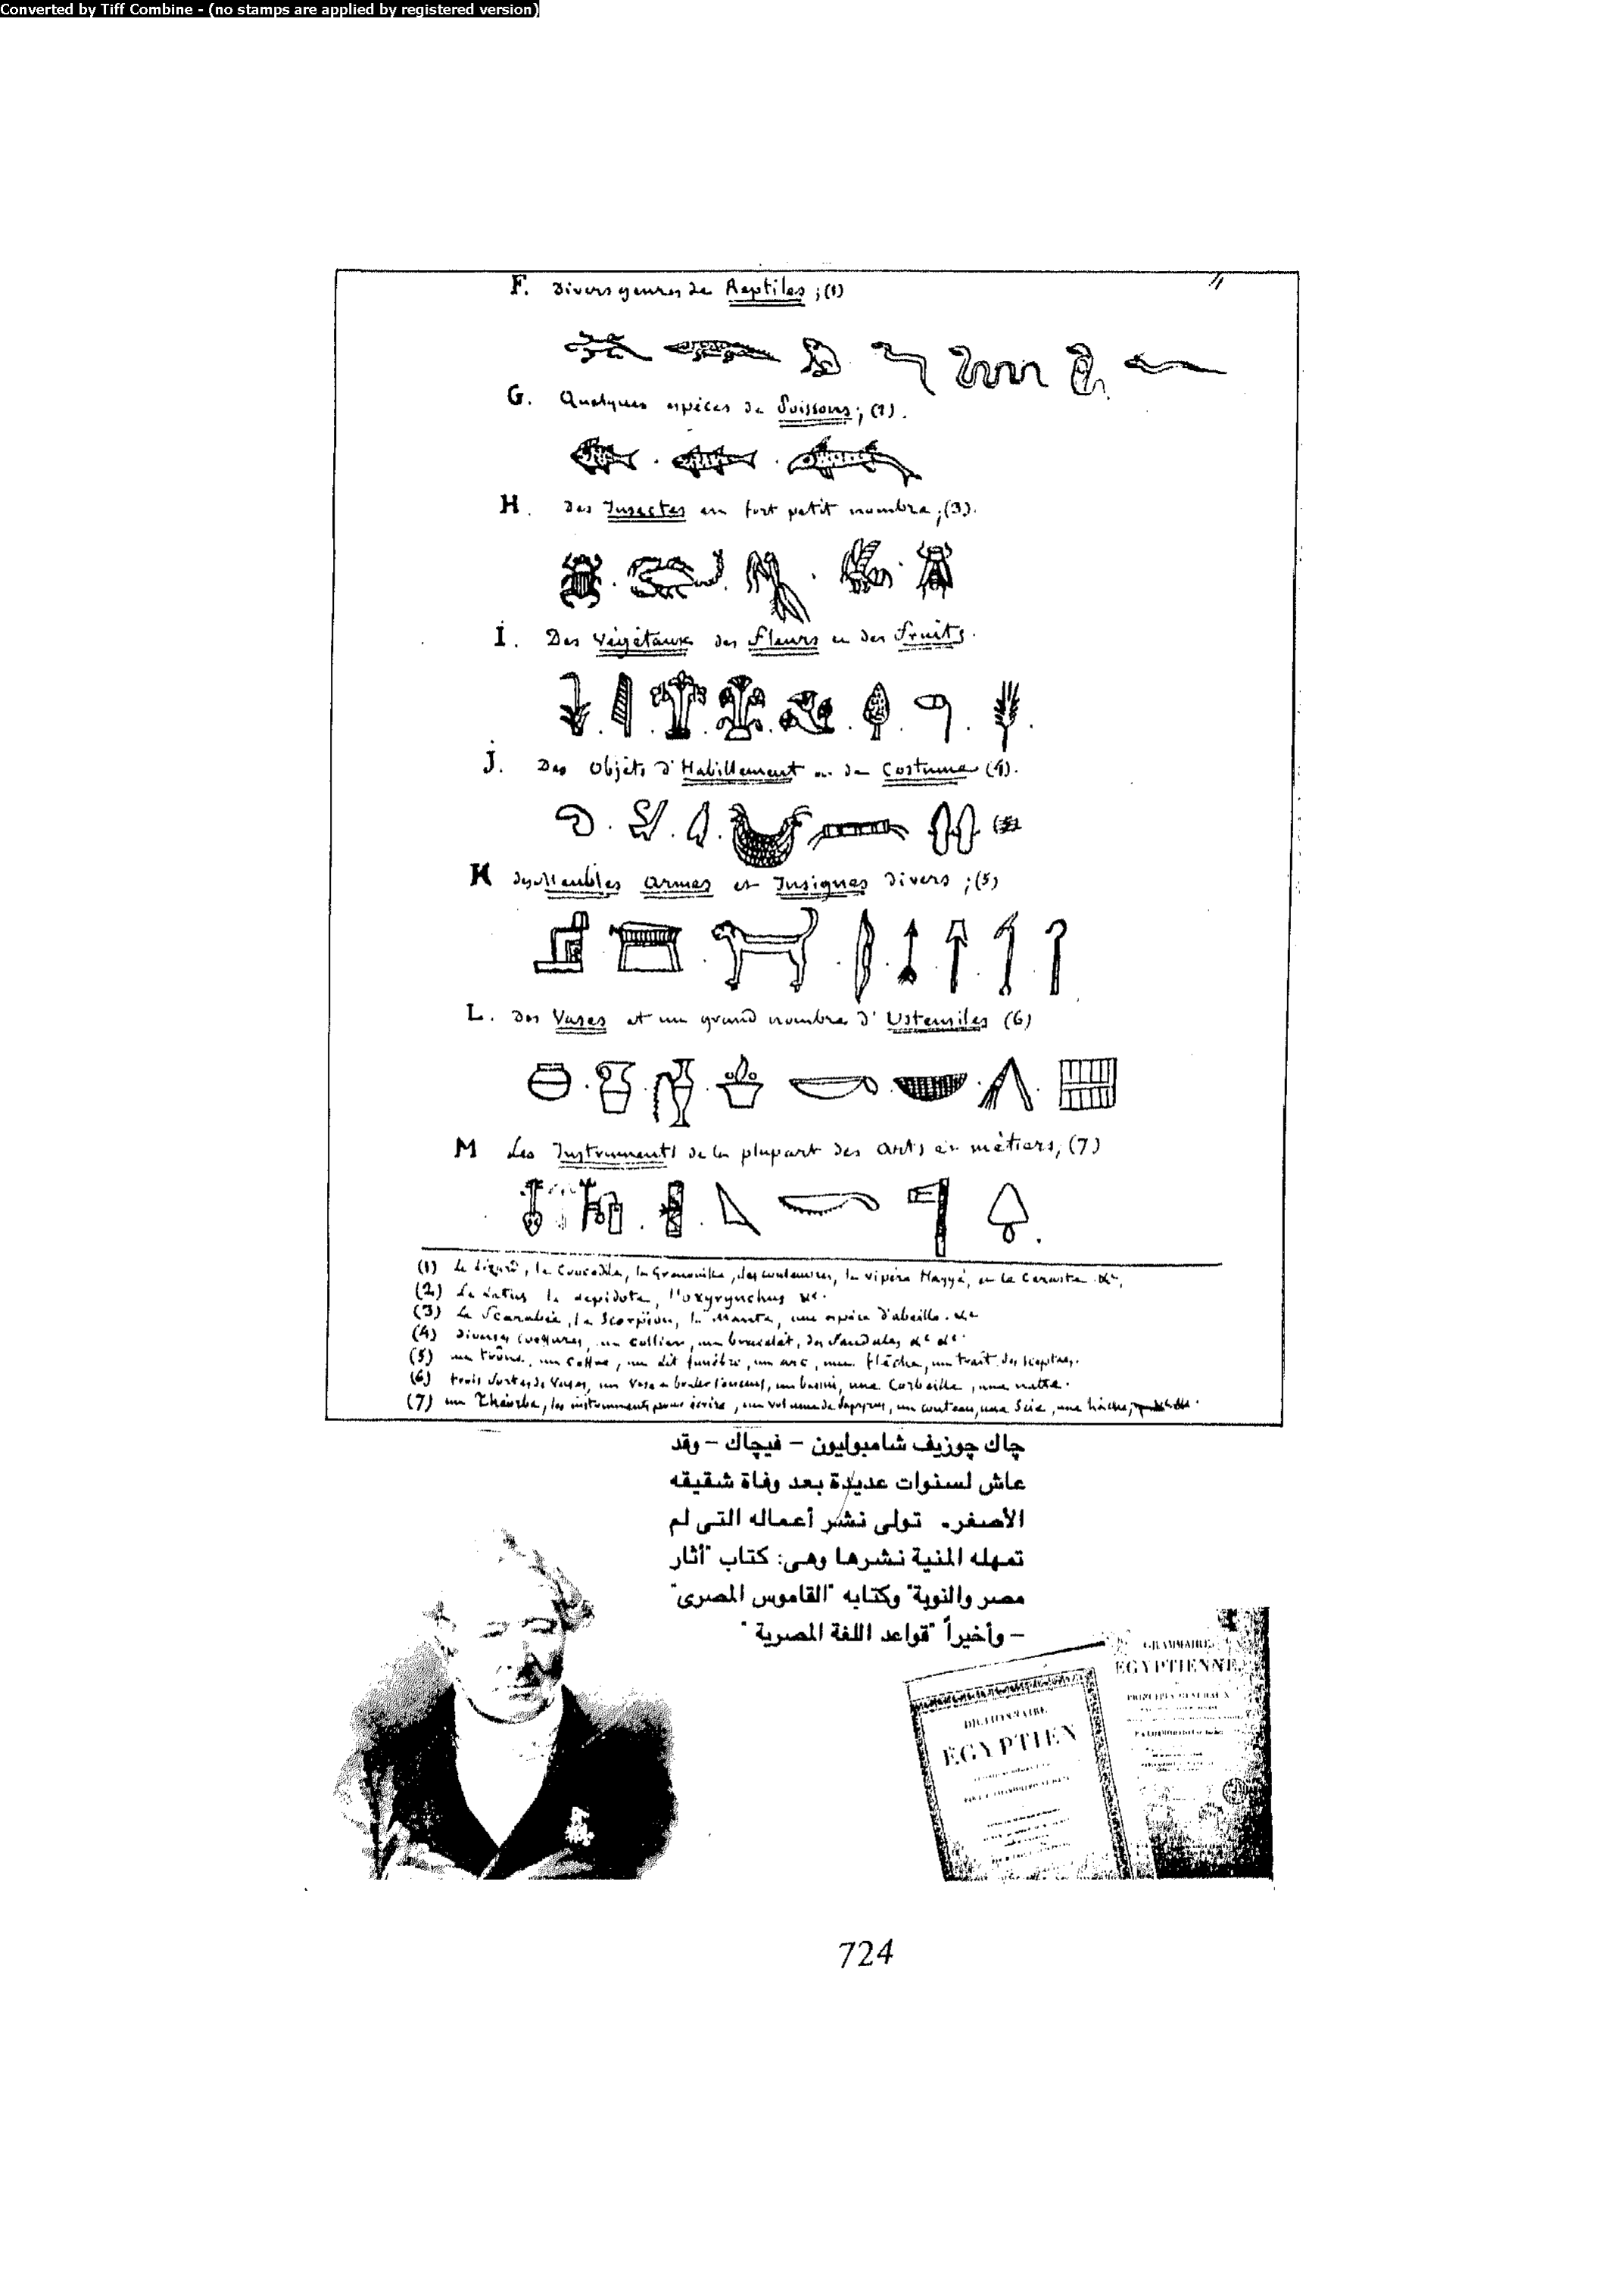 Converted by Tiff Combine - (no stamps are applied by registered version)
F. Divers genres de Reptiles ; (1)
G. Quelques espèces de Poissons ; (2).
H. Des Insectes en fort petit nombre ; (3).
I. Des Végétaux des fleurs et des fruits.
J. Des Objets d'Habillement ou de Costume (4).
K des Meubles Armes et Insignes divers ; (5)
L. Des Vases et un grand nombre d'Ustensiles (6)
M Les Instruments de la plupart des arts et métiers, (7)
(1) Le Lézard, le Crocodile, la Grenouille, des couleuvres, la vipère Hayyé, et le Ceraste &c,
(2) Le Latus le Lepidote, l'oxyrynchus &c.
(3) Le Scarabée, le Scorpion, la Mante, une espèce d'abeille. &c
(4) Diverses coëffures, un collier, un bracelet, des Sandales &c &c.
(5) un trône, un coffre, un lit funèbre, un arc, une flèche, un trait, des sceptres.
(6) trois sortes de Vases, un Vase à bruler l'encens, un bassin, une Corbeille, une natte.
(7) un Théorbe, les instruments pour écrire, un volume de papyrus, un couteau, une Scie, une hache,
چاك چوزيف شامبوليون – فيچاك – وقد
عاش لسنوات عديدة بعد وفاة شقيقه
الأصغر. تولى نشر أعماله التى لم
تمهله المنية نشرها وهى: كتاب "أثار
مصر والنوبة" وكتابه "القاموس المصرى"
– وأخيراً "قواعد اللغة المصرية"
DICTIONNAIRE
EGYPTIEN
GRAMMAIRE
EGYPTIENNE
PRINCIPES GENERAUX
724